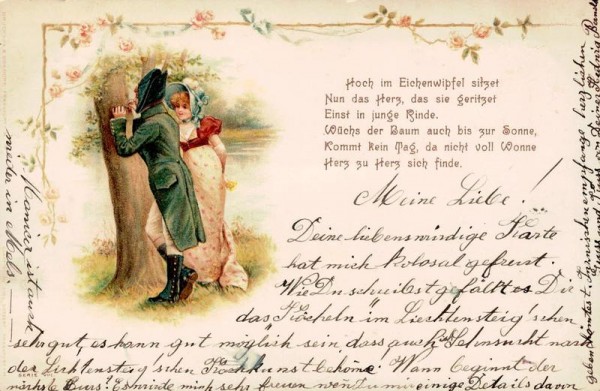 Hoch im Eichenwipfel sitzet
Nun das Herz, das sie geritzet
Einst in junge Rinde.
Wüchs der Baum auch bis zur Sonne,
Kommt kein Tag, da nicht voll Wonne
Herz zu Herz sich finde.
Meine Liebe!
Deine liebenswürdige Karte
hat mich kolosal gefreut.
Wie Du schreibst gefällt es Dir
das Köcheln im Liechtensteig'schen
sehr gut, es kann gut möglich sein dass auch Sehnsucht nach
der Lichtensteig'schen Kochkunst bekome. Wann beginnt der
nächste Curs? Es würde mich sehr freuen wenn Du mir einige Details davon
geben könntest. Inzwischen empfange herzlichen
Gruss und von Deiner Hedwig
SERIE